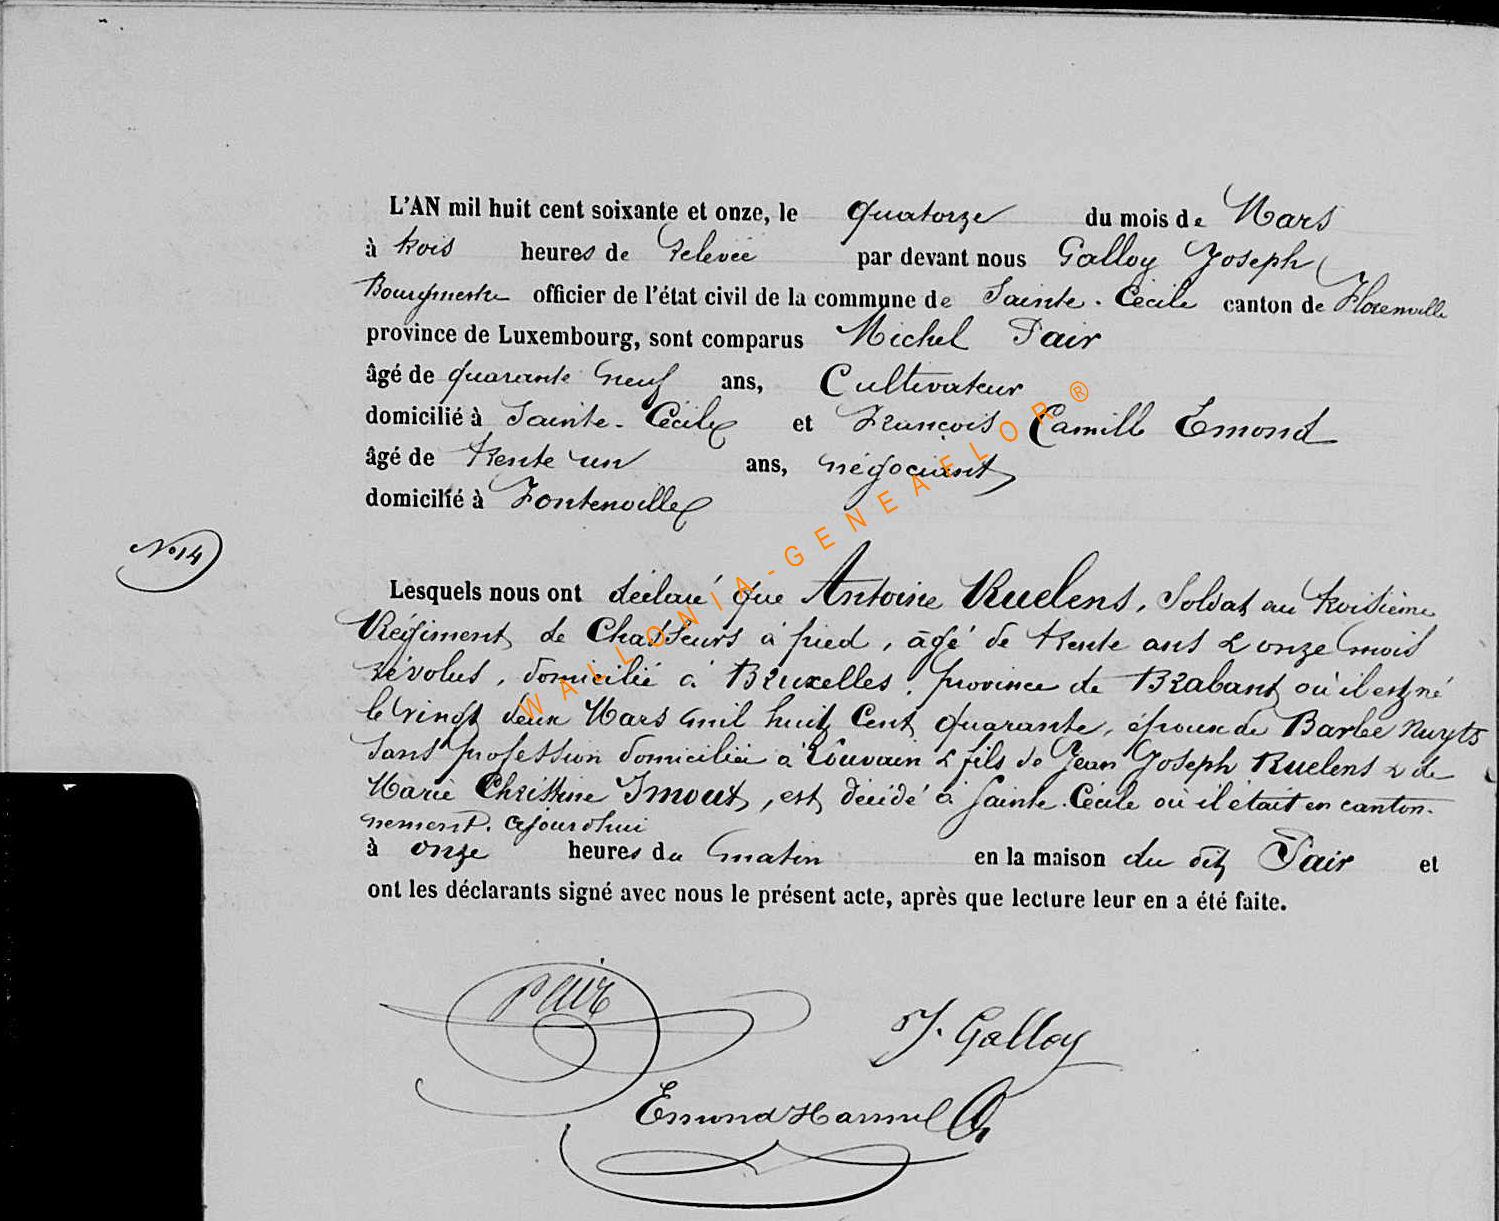 L'AN mil huit cent soixante et onze, le quatorze du mois de Mars
à trois heures de relevée par devant nous Galloy Joseph
Bourgmestre officier de l'état civil de la commune de Sainte-Cécile canton de Florenville
province de Luxembourg, sont comparus Michel Pair
âgé de quarante neuf ans, Cultivateur
domicilié à Sainte-Cécile et François Camill Emond
âgé de trente un ans, négociant
domicilié à Fontenoille
No 14
Lesquels nous ont déclaré que Antoine Ruelens, Soldat au troisième
Régiment de Chasseurs à pied, âgé de trente ans & onze mois
révolus, domicilié à Bruxelles, province de Brabant où il est né
le vingt deux Mars mil huit Cent quarante, époux de Barbe Nuyts
sans profession domiciliée à Louvain & fils de Jean Joseph Ruelens & de
Marie Christine Imout, est décédé à Sainte-Cécile où il était en canton-
nement. ajourd'hui
à onze heures du matin en la maison du dit Pair et
ont les déclarants signé avec nous le présent acte, après que lecture leur en a été faite.
Pair
J. Galloy
Emond Hamel
WALLONIA-GENEAFLOR ®